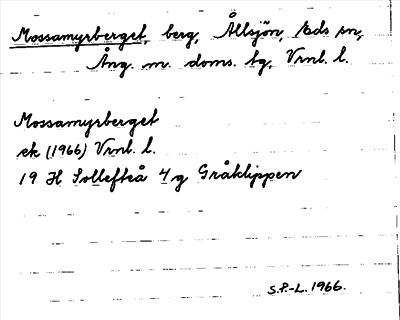 Mossamyrberget, berg, Ållsjön, Eds sn,
Ång. m. doms. tg, Vrnl. l.
Mossamyrberget
ek (1966) Vrnl. l.
19 H Sollefteå 4 g Gråklippen
S.P.-L. 1966.